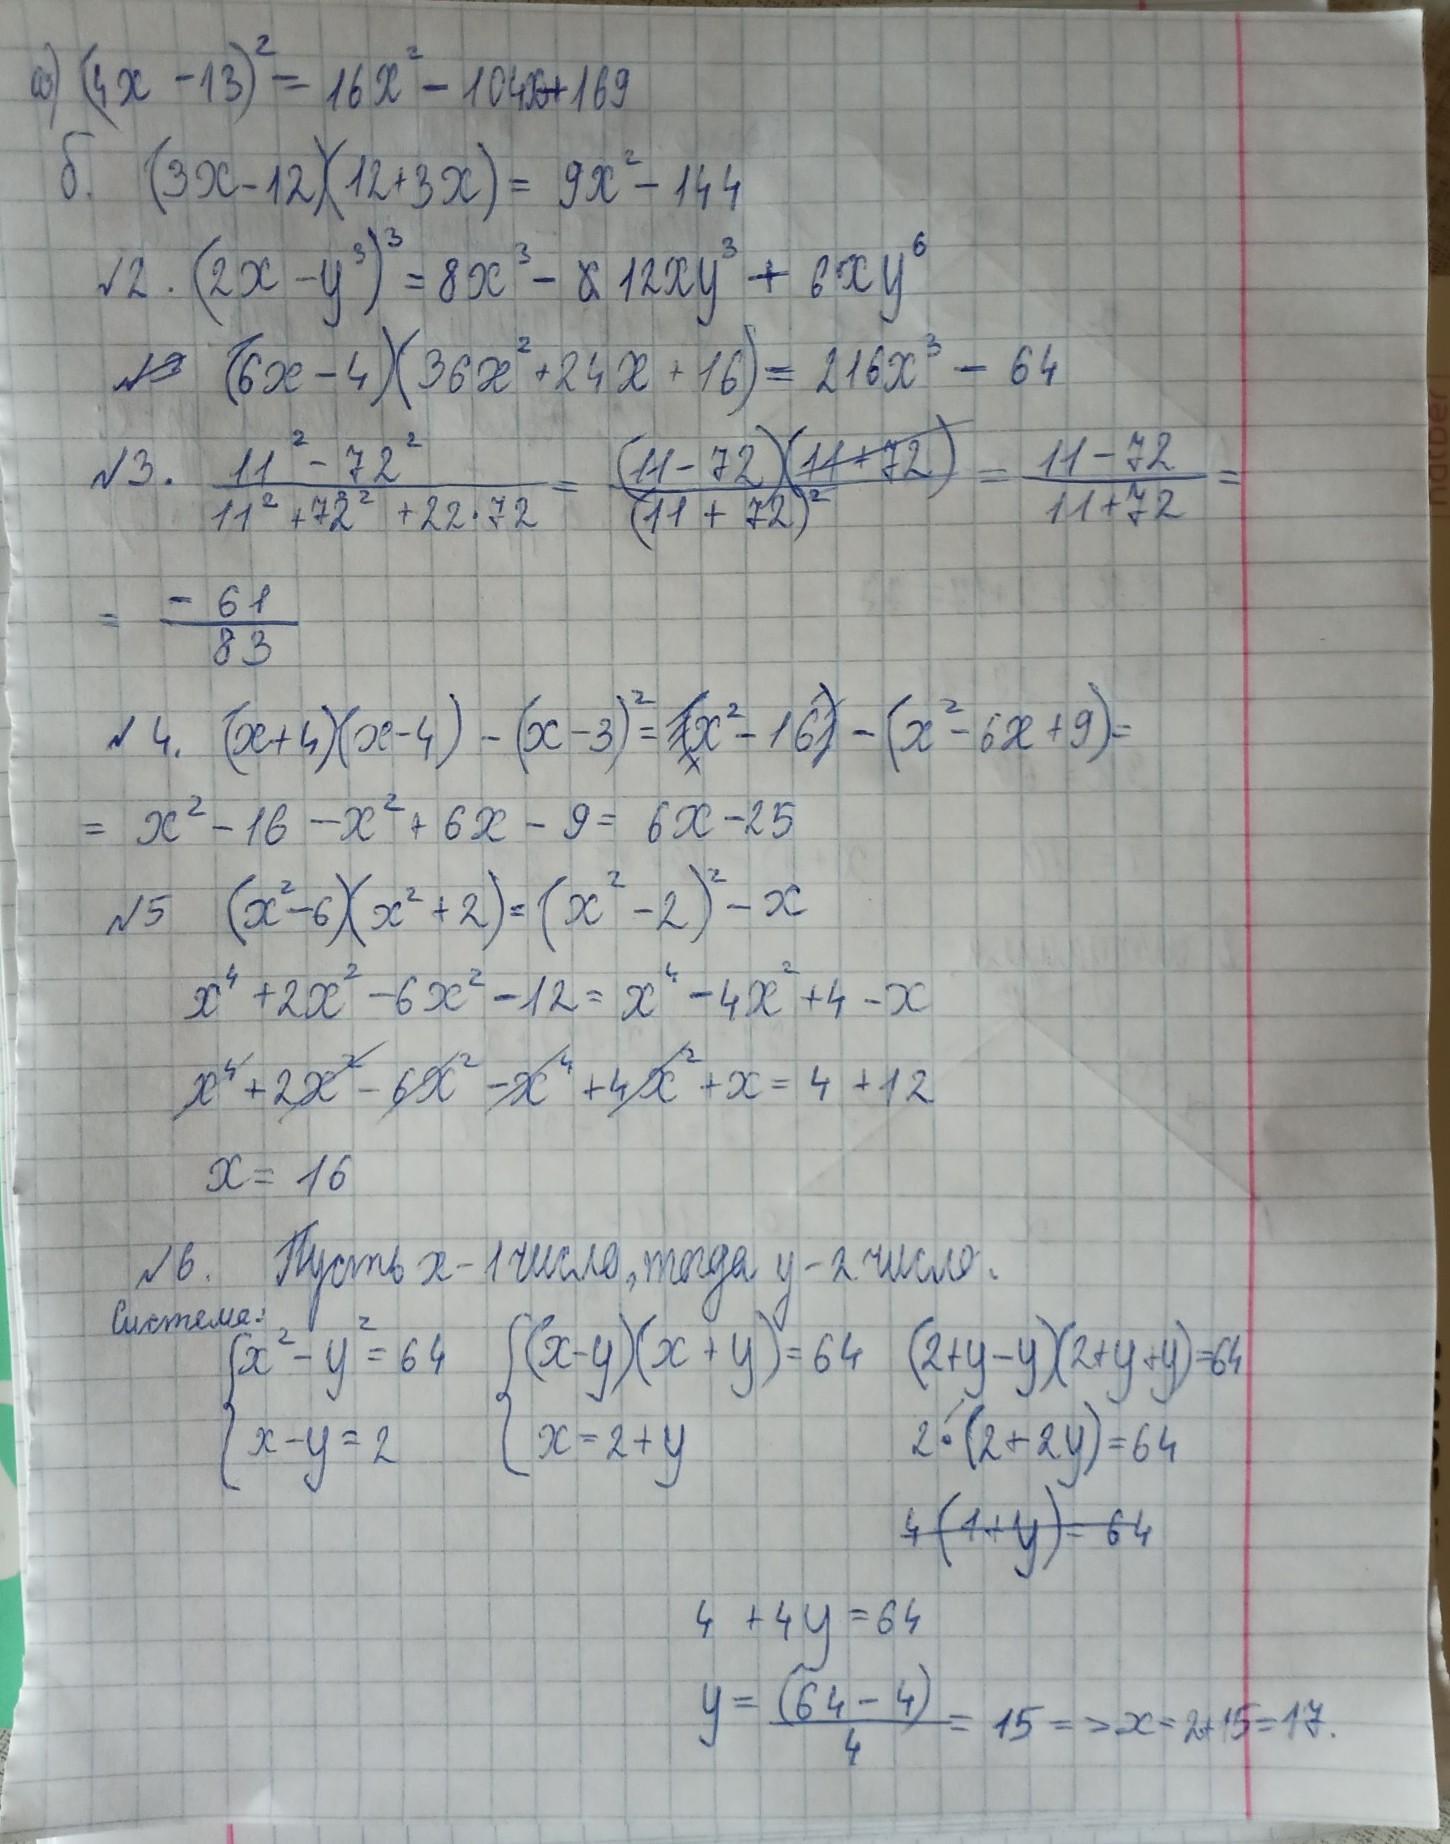 а) (4x - 13)² = 16x² - 104x + 169
б. (3x - 12)(12 + 3x) = 9x² - 144
№2. (2x - y³)³ = 8x³ - 12xy³ + 6xy⁶
(6x - 4)(36x² + 24x + 16) = 216x³ - 64
№3. (11² - 72²)/(11² + 72² + 22·72) = ((11 - 72)(11 + 72))/((11 + 72)²) = (11 - 72)/(11 + 72) =
= -61/83
№4. (x + 4)(x - 4) - (x - 3)² = (x² - 16) - (x² - 6x + 9) =
= x² - 16 - x² + 6x - 9 = 6x - 25
№5 (x² - 6)(x² + 2) = (x² - 2)² - x
x⁴ + 2x² - 6x² - 12 = x⁴ - 4x² + 4 - x
x⁴ + 2x² - 6x² - x⁴ + 4x² + x = 4 + 12
x = 16
№6. Пусть x - 1 число, тогда y - 2 число.
Система:
{x² - y² = 64 {(x - y)(x + y) = 64 (2 + y - y)(2 + y + y) = 64
x - y = 2 x = 2 + y 2·(2 + 2y) = 64
4(1 + y) = 64
4 + 4y = 64
y = (64 - 4)/4 = 15 => x = 2 + 15 = 17.